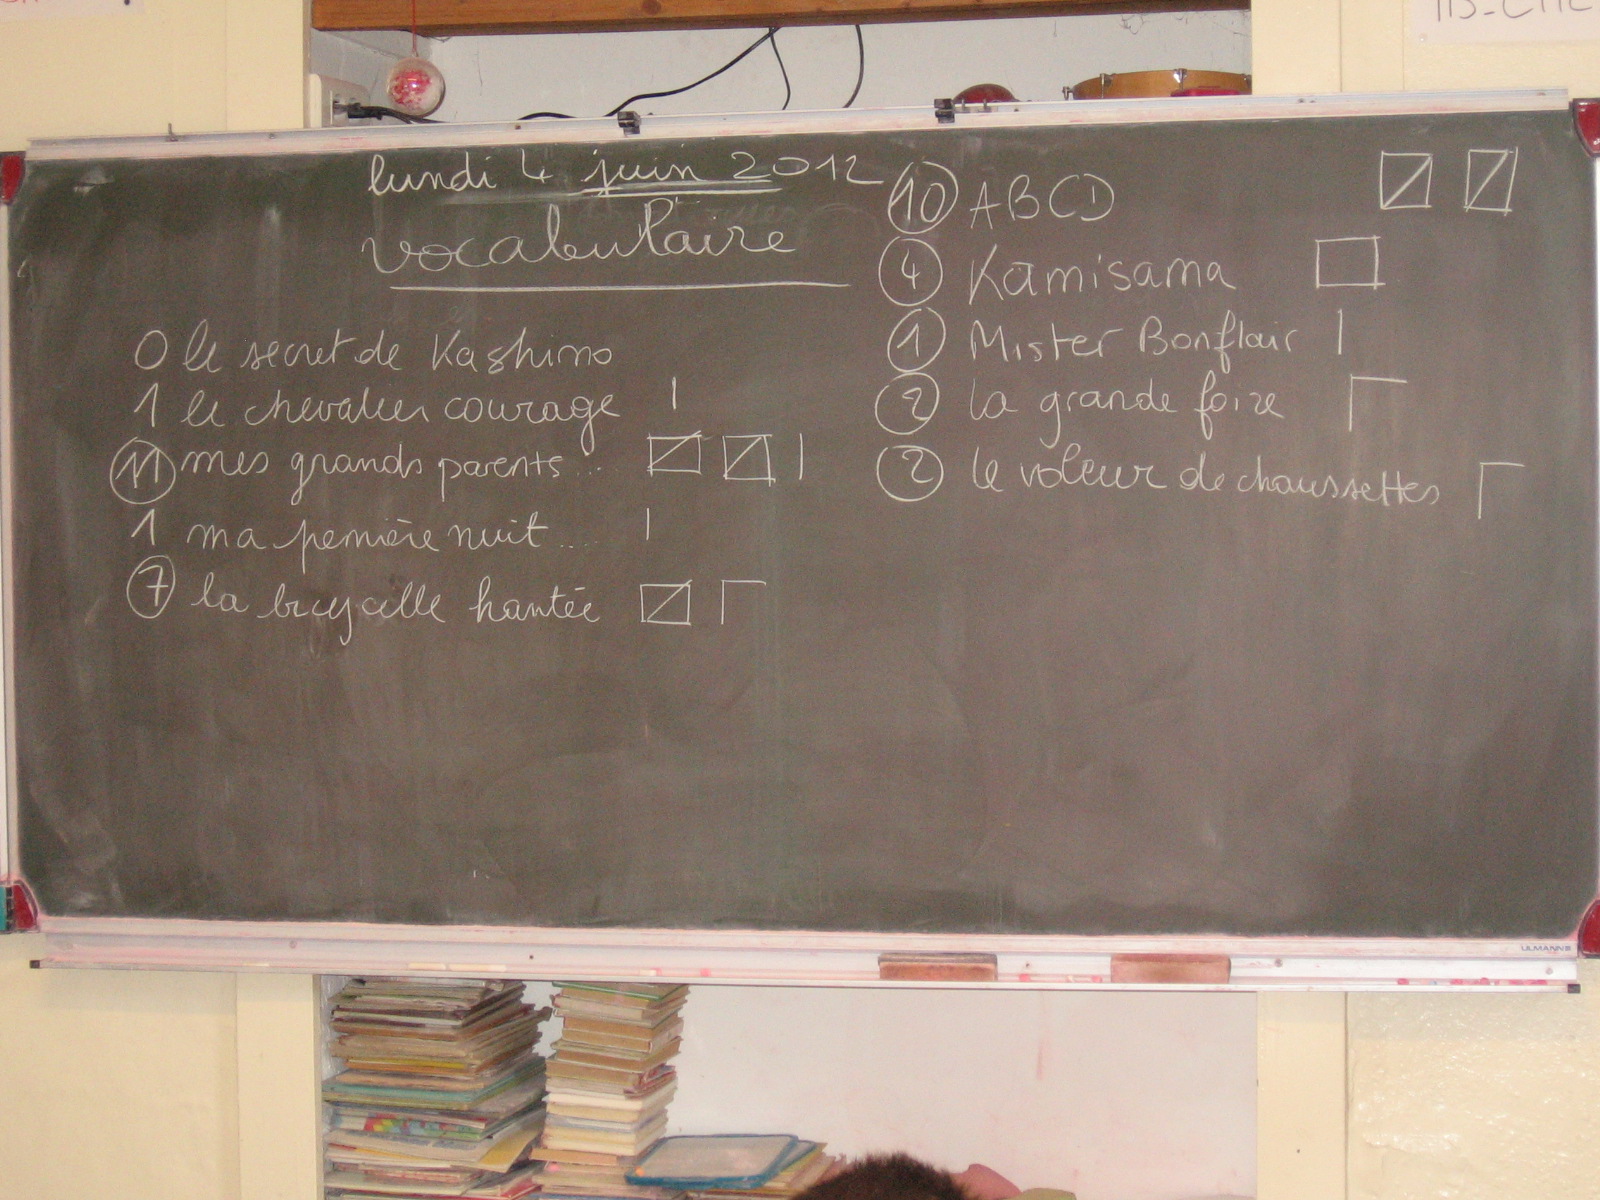 lundi 4 juin 2012
vocabulaire
0 le secret de Kashino
1 le chevalier courage |
11 mes grands parents... |
1 ma pemière nuit.... |
7 la bicyclette hantée
10 ABCD
4 Kamisama
1 Mister Bonflair |
2 la grande foire
2 le voleur de chaussettes
ULMANN